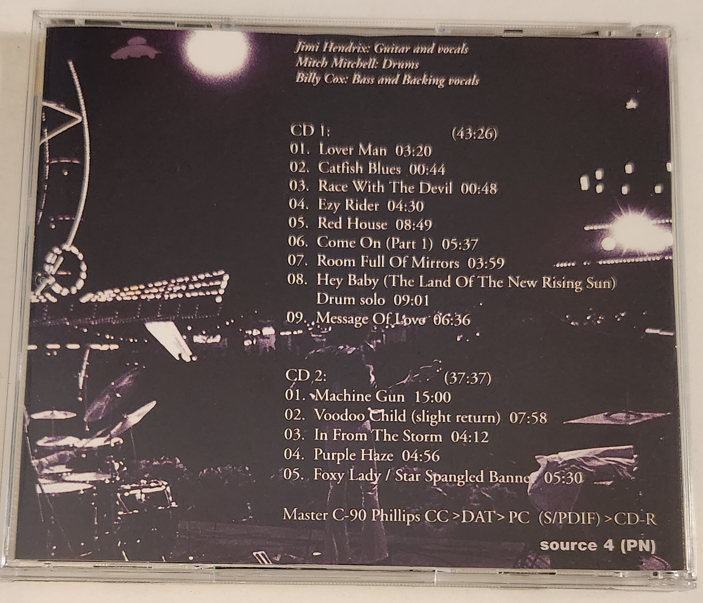 Jimi Hendrix: Guitar and vocals
Mitch Mitchell: Drums
Billy Cox: Bass and Backing vocals
CD 1: (43:26)
01. Lover Man 03:20
02. Catfish Blues 00:44
03. Race With The Devil 00:48
04. Ezy Rider 04:30
05. Red House 08:49
06. Come On (Part 1) 05:37
07. Room Full Of Mirrors 03:59
08. Hey Baby (The Land Of The New Rising Sun)
Drum solo 09:01
09. Message Of Love 06:36
CD 2: (37:37)
01. Machine Gun 15:00
02. Voodoo Child (slight return) 07:58
03. In From The Storm 04:12
04. Purple Haze 04:56
05. Foxy Lady / Star Spangled Banner 05:30
Master C-90 Phillips CC >DAT> PC (S/PDIF) >CD-R
source 4 (PN)